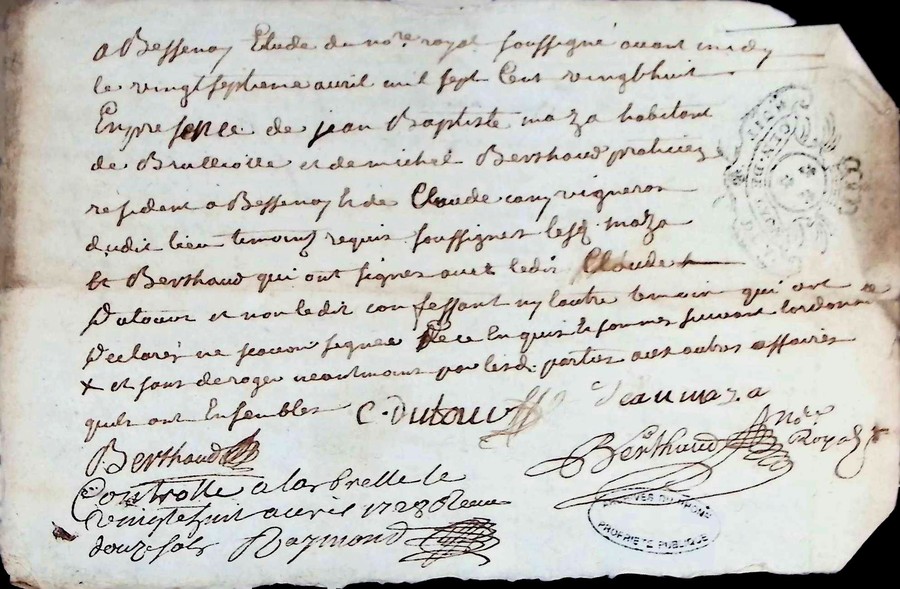 a Bessenay Etude du no.re royal soussigné avant midy
le vingtseptieme avril mil sept Cent vingthuit
En presence de jean Baptiste maza habitant
de Brulliolle et de michel Berthaud praticien
résidant a Bessenay & de Claude cony vigneron
dudit lieu temoins requis soussignes lesq. maza
Et Berthaud qui ont signes avec ledit Claude
Dutour et non ledit confessant ny lautre temoin qui ont
declarés ne scavoir signer de ce Enquis & sommes suivant lordonn.ce
x et sans deroger neantmoins par lesd. parties aux autres affaires
quils ont Ensembles C. Dutour Jean maza
Berthaud
Berthaud No.re Royal
Controllé a larbrelle le
vingt huit avril 1728 Receu
douze sols Raymond
GEN. DE LYON
ARCHIVES DU RHONE
PROPRIETE PUBLIQUE